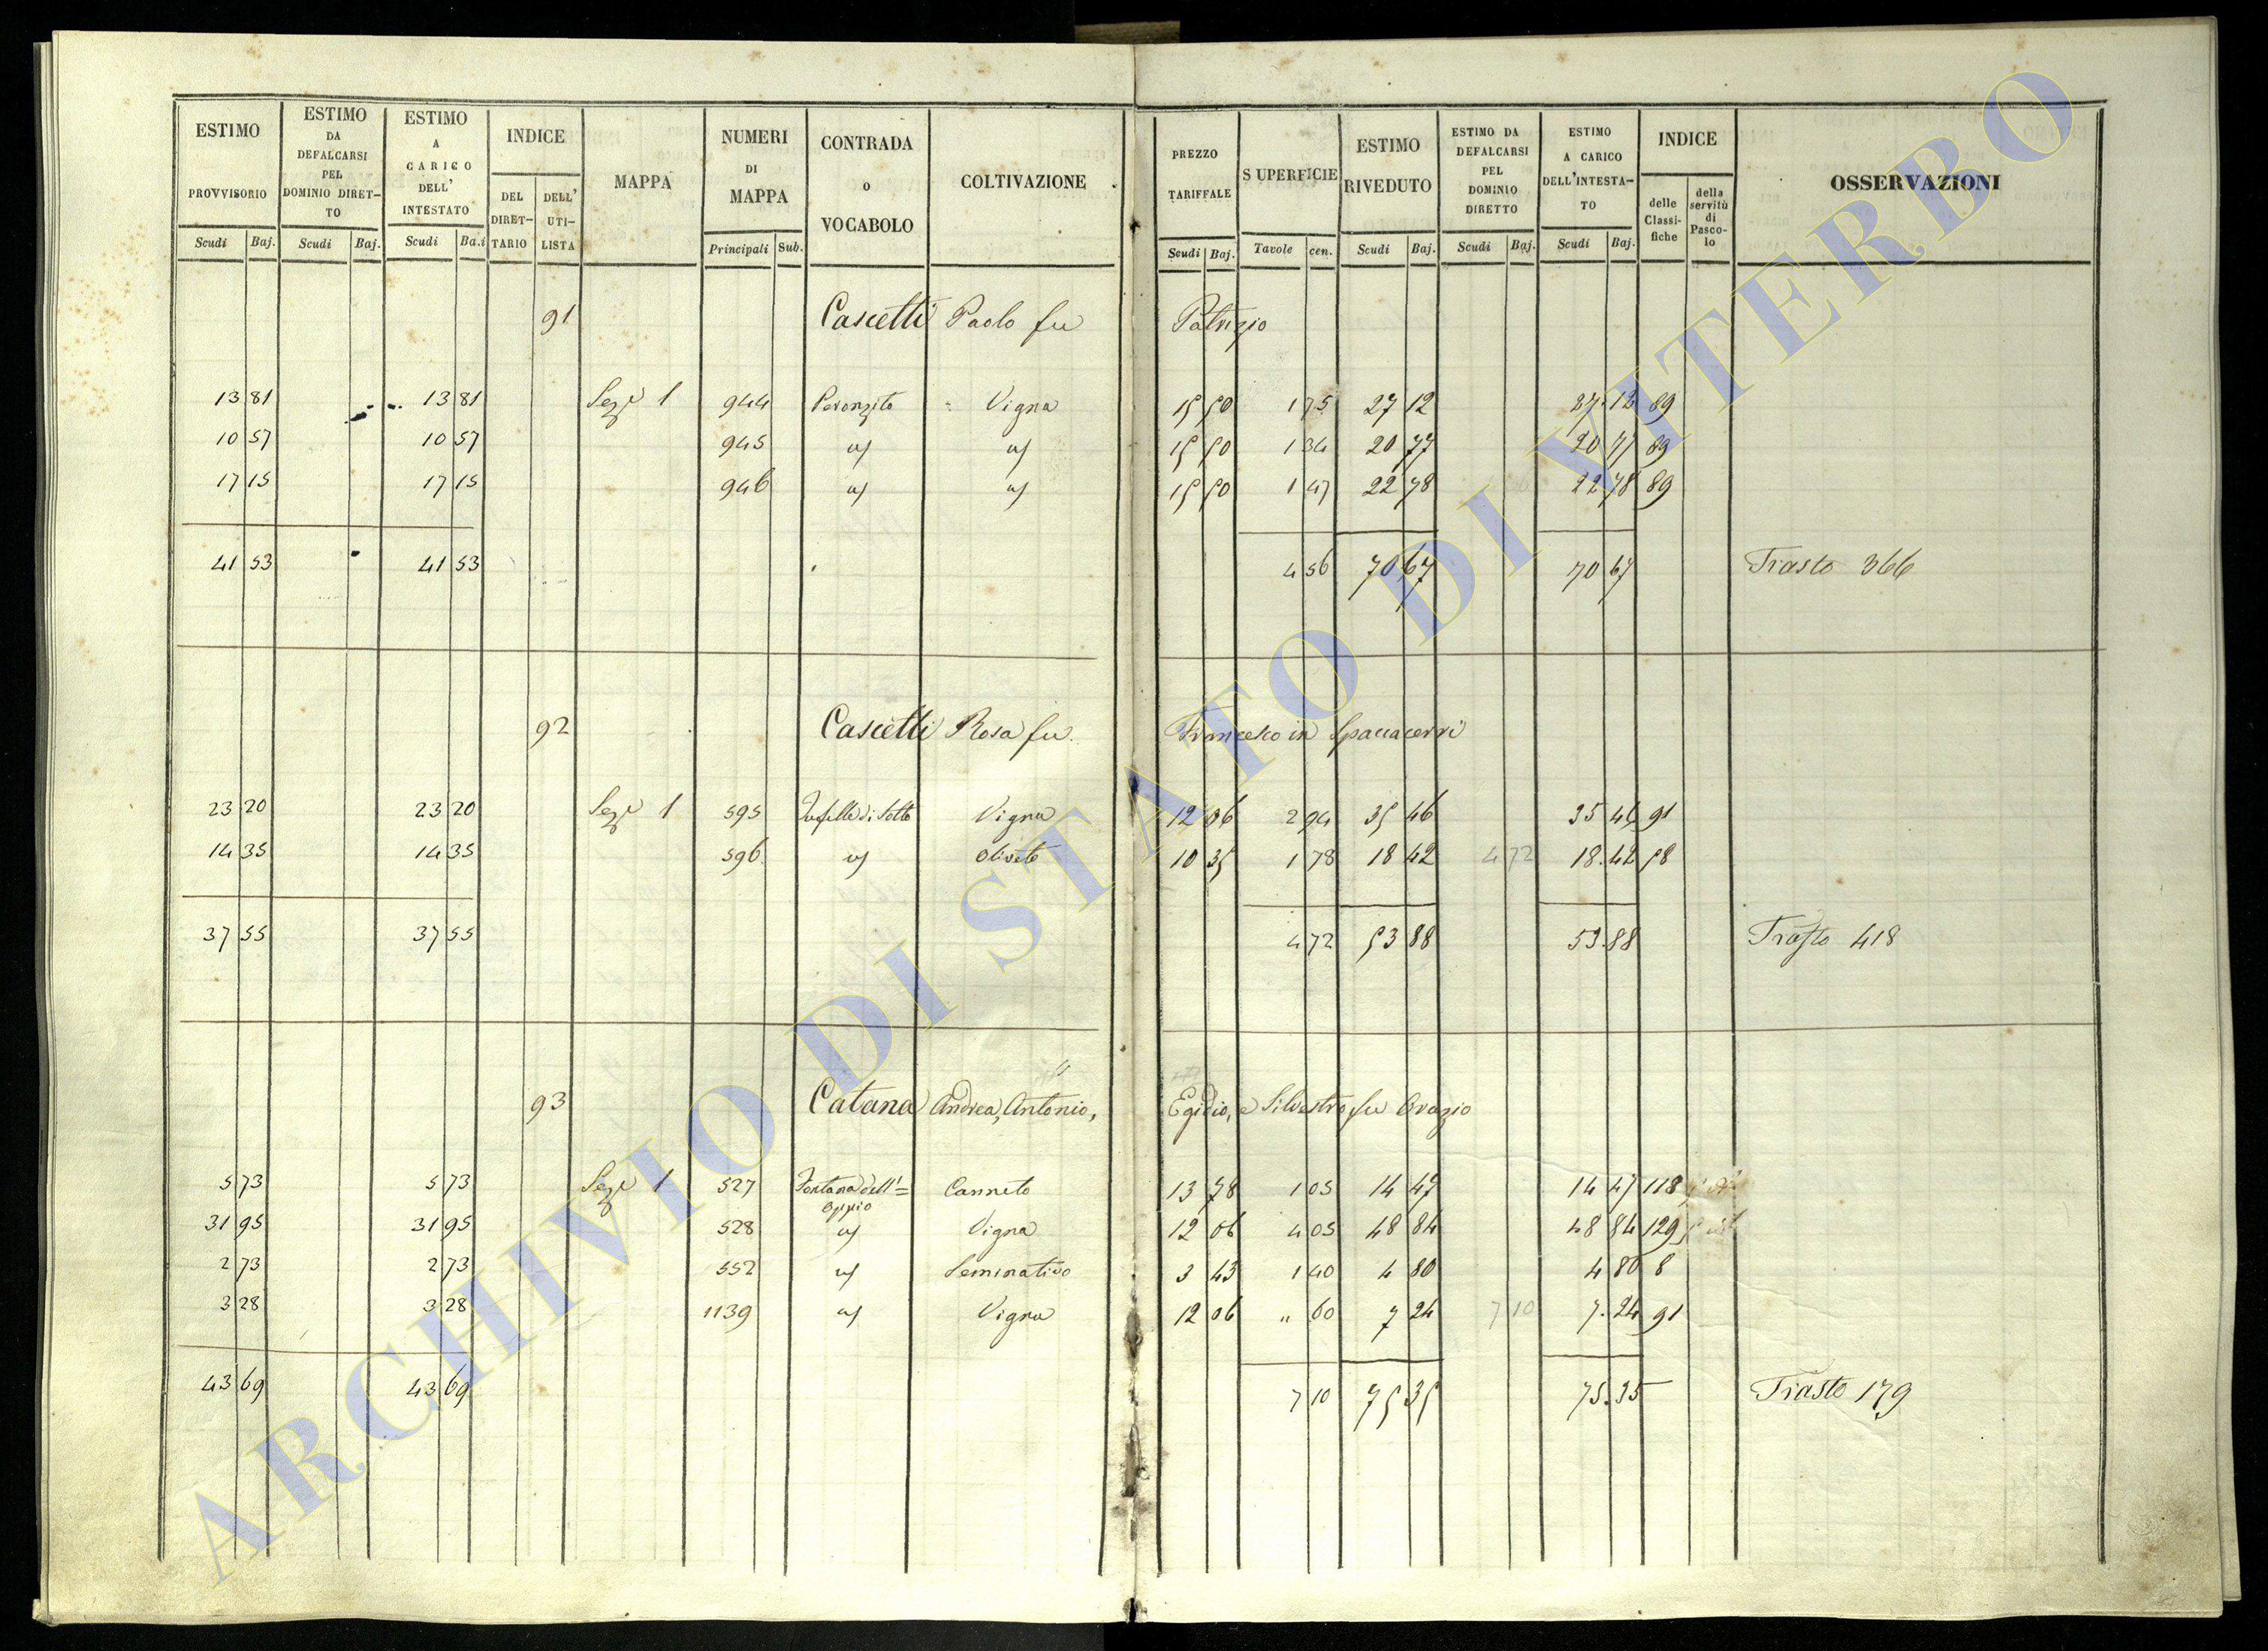 ESTIMO PROVVISORIO | ESTIMO DA DEFALCARSI PEL DOMINIO DIRET-TO | ESTIMO A CARICO DELL' INTESTATO | INDICE | MAPPA | NUMERI DI MAPPA | CONTRADA O VOCABOLO | COLTIVAZIONE | PREZZO TARIFFALE | SUPERFICIE | ESTIMO RIVEDUTO | ESTIMO DA DEFALCARSI PEL DOMINIO DIRETTO | ESTIMO A CARICO DELL'INTESTA-TO | INDICE | OSSERVAZIONI
DEL DIRET-TARIO | DELL' UTI-LISTA | delle Classi-fiche | della servitù di Pasco-lo
Scudi | Baj. | Scudi | Baj. | Scudi | Ba.i | Principali | Sub. | Scudi | Baj. | Tavole | cen. | Scudi | Baj. | Scudi | Baj. | Scudi | Baj.
91 Cascetti Paolo fu Patrizio
13 81 | 13 81 | Sez.e 1 | 944 | Peronzito | Vigna | 15 50 | 1 75 | 27 12 | 27.12 | 89
10 57 | 10 57 | 945 | " | " | 15 50 | 1 34 | 20 77 | 20 77 | 89
17 15 | 17 15 | 946 | " | " | 15 50 | 1 47 | 22 78 | 22 78 | 89
41 53 | 41 53 | 4 56 | 70 67 | 70 67 | Trasto 366
92 Cascetti Rosa fu Francesco in Spaccacerri
23 20 | 23 20 | Sez.e 1 | 595 | di Sotto | Vigna | 12 06 | 2 94 | 35 46 | 35 46 | 91
14 35 | 14 35 | 596 | " | Oliveto | 10 35 | 1 78 | 18 42 | 4 72 | 18.42 | 58
37 55 | 37 55 | 4 72 | 53 88 | 53.88 | Trasto 418
93 Catana Andrea, Antonio, Egidio, e Silvestro fu Orazio
5 73 | 5 73 | Sez.e 1 | 527 | Fontana dell'= Oppio | Canneto | 13 78 | 1 05 | 14 47 | 14 47 | 118
31 95 | 31 95 | 528 | " | Vigna | 12 06 | 4 05 | 48 84 | 48 84 | 129
2 73 | 2 73 | 552 | " | Seminativo | 3 43 | 1 40 | 4 80 | 4 80 | 8
3 28 | 3 28 | 1139 | " | Vigna | 12 06 | " 60 | 7 24 | 7 10 | 7.24 | 91
43 69 | 43 69 | 7 10 | 75 35 | 75.35 | Trasto 179
ARCHIVIO DI STATO DI VITERBO